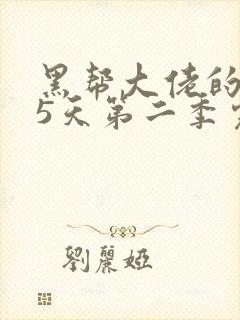 黑帮大佬的
5天第二季
劉麗婭